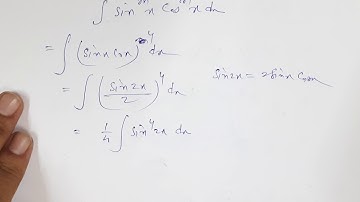 ∫ sin x cos x dx
= ∫ (sinx cosx)⁴ dx
= ∫ (sin 2x / 2)⁴ dx sin2x = 2sinx cosx
= 1/4 ∫ sin⁴2x dx